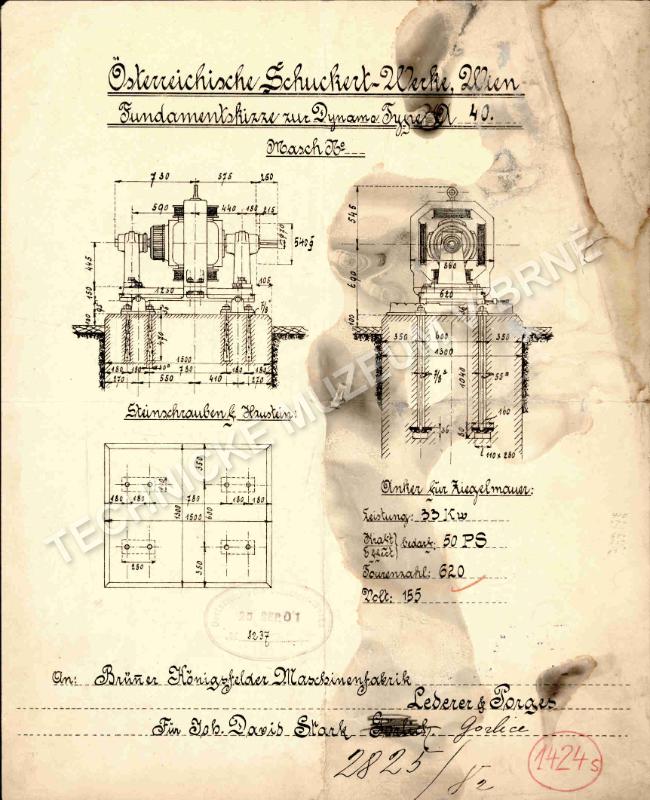 Österreichische Schuckert-Werke, Wien
Fundamentskizze zur Dynamo Type A 40.
Masch No
730 575 260
590 440 150 215
540 ϕ
445
150
100
1250
105
1500
180 180 780 180 180
270 560 410 270
545
690
100
560
620
350 600 350
1300
1040
160
110 x 280
Steinschrauben f. Haustein:
180 180 780 180 180
1500
1300
350
600
350
280
Anker für Ziegelmauer:
Leistung: 33 Kw
Kraft
Effect bedarf: 50 PS
Tourenzahl: 620
Volt: 155
25 SEP. 01
8237
An: Brünner Königsfelder Maschinenfabrik
Lederer & Porges
Für Joh. David Stark Gorlice
2825/
1424s
TECHNICKÉ MUZEUM V BRNĚ